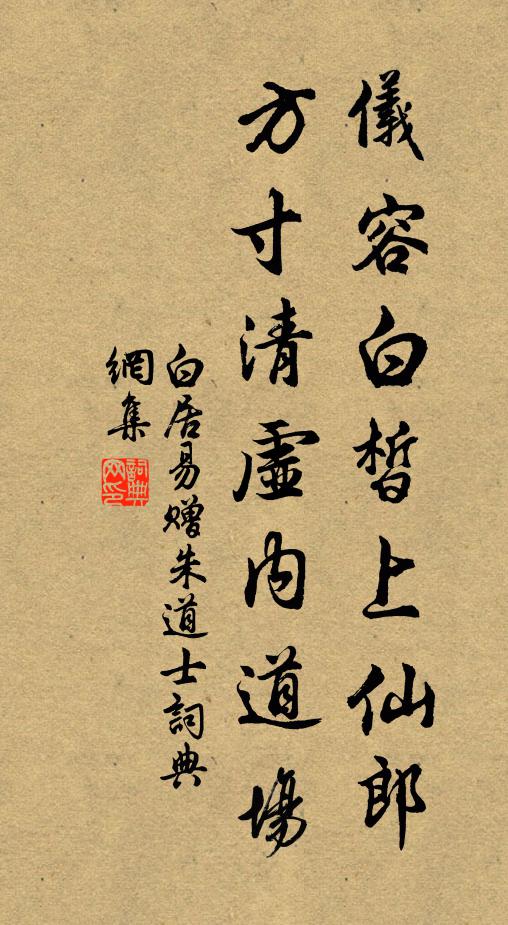 儀容白皙上仙郎
方寸清虛內道場
白居易贈朱道士詞典
網集
詞典網印